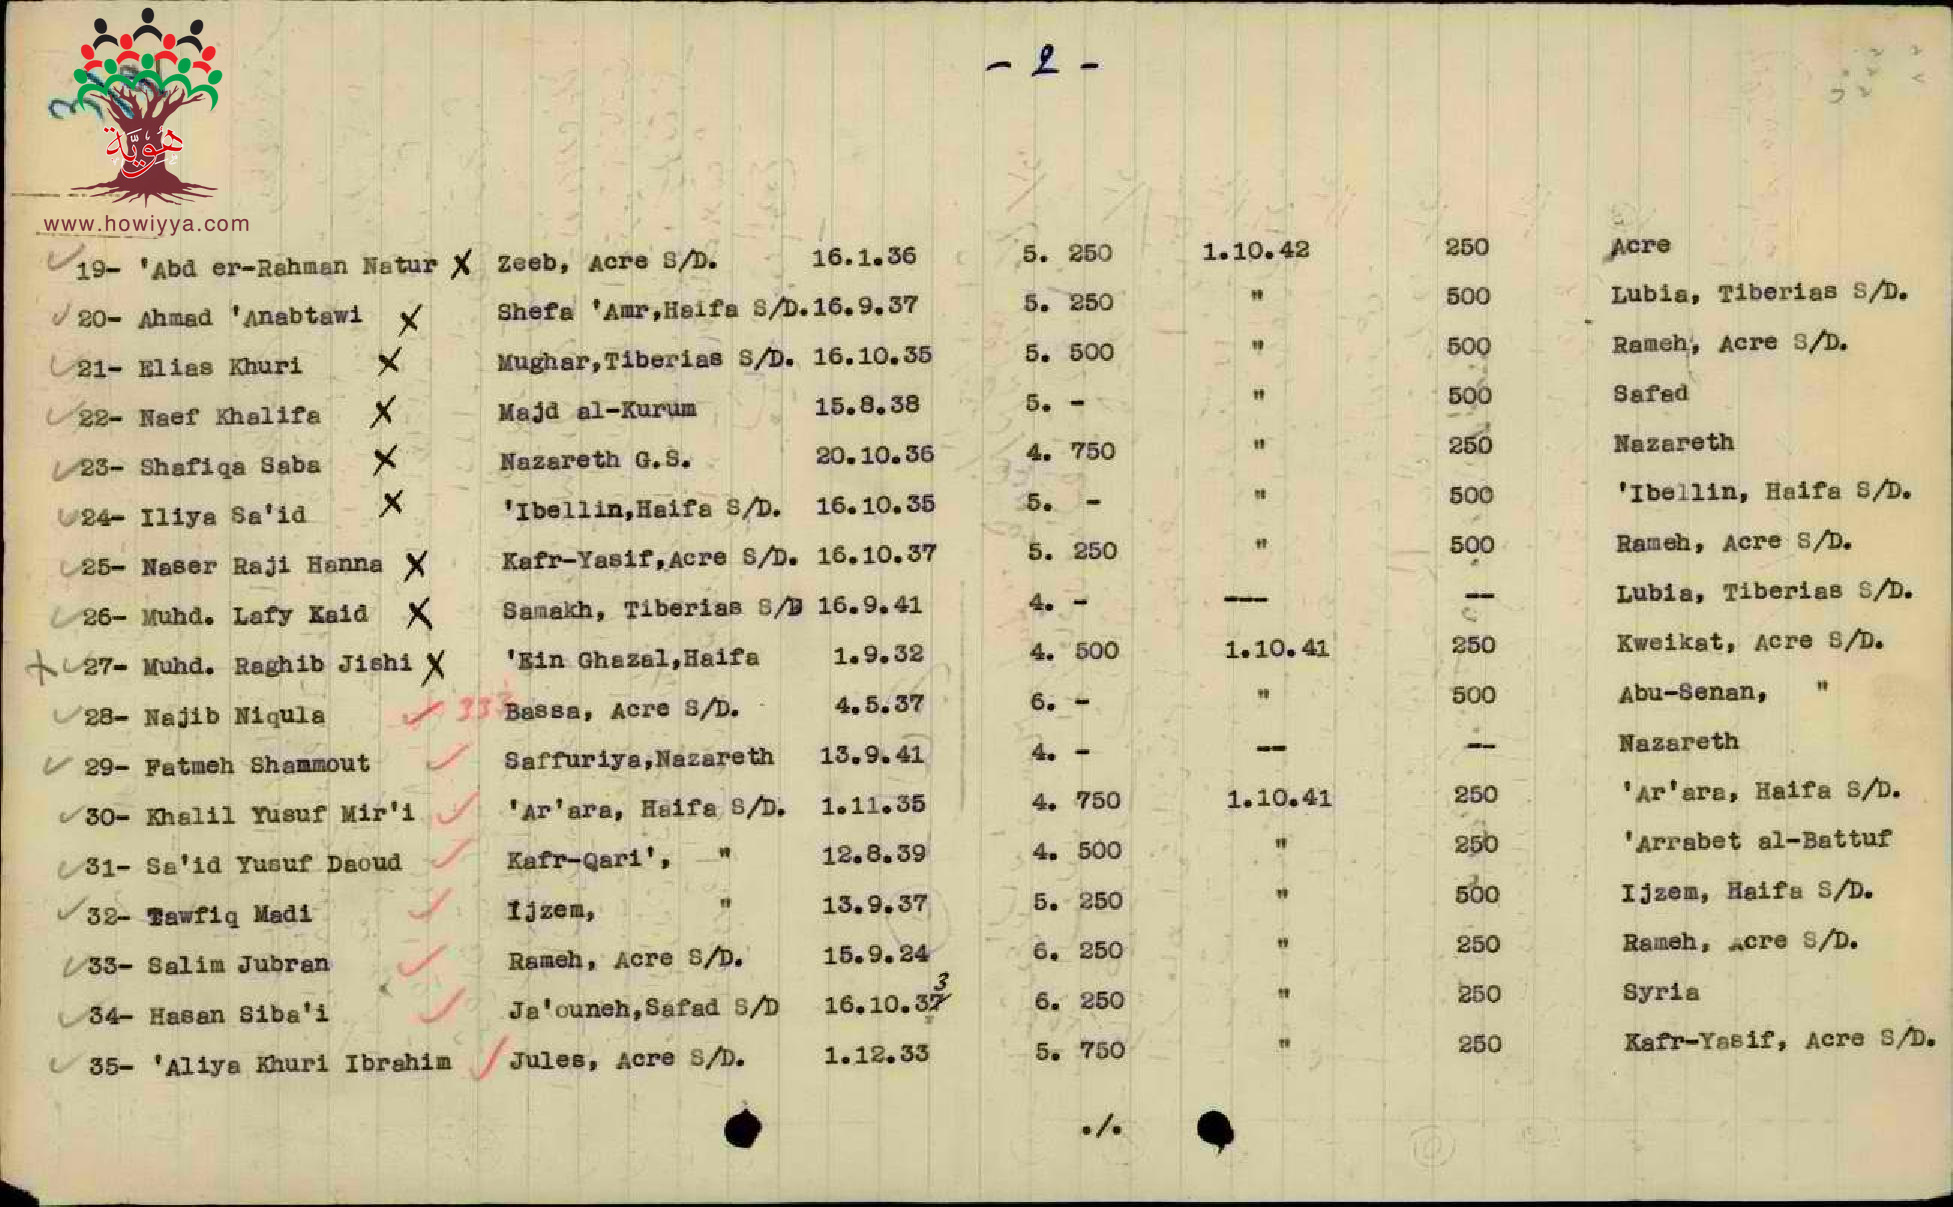 - 2 -
هُويَّة
www.howiyya.com
19- 'Abd er-Rahman Natur X Zeeb, Acre S/D. 16.1.36 5. 250 1.10.42 250 Acre
20- Ahmad 'Anabtawi X Shefa 'Amr,Haifa S/D. 16.9.37 5. 250 " 500 Lubia, Tiberias S/D.
21- Elias Khuri X Mughar,Tiberias S/D. 16.10.35 5. 500 " 500 Rameh, Acre S/D.
22- Naef Khalifa X Majd al-Kurum 15.8.38 5. - " 500 Safad
23- Shafiqa Saba X Nazareth G.S. 20.10.36 4. 750 " 250 Nazareth
24- Iliya Sa'id X 'Ibellin,Haifa S/D. 16.10.35 5. - " 500 'Ibellin, Haifa S/D.
25- Naser Raji Hanna X Kafr-Yasif,Acre S/D. 16.10.37 5. 250 " 500 Rameh, Acre S/D.
26- Muhd. Lafy Kaid X Samakh, Tiberias S/D 16.9.41 4. - --- -- Lubia, Tiberias S/D.
27- Muhd. Raghib Jishi X 'Ein Ghazal,Haifa 1.9.32 4. 500 1.10.41 250 Kweikat, Acre S/D.
28- Najib Niqula ✓ 33 Bassa, Acre S/D. 4.5.37 6. - " 500 Abu-Senan, "
29- Fatmeh Shammout ✓ Saffuriya,Nazareth 13.9.41 4. - -- -- Nazareth
30- Khalil Yusuf Mir'i ✓ 'Ar'ara, Haifa S/D. 1.11.35 4. 750 1.10.41 250 'Ar'ara, Haifa S/D.
31- Sa'id Yusuf Daoud ✓ Kafr-Qari', " 12.8.39 4. 500 " 250 'Arrabet al-Battuf
32- Tawfiq Madi ✓ Ijzem, " 13.9.37 5. 250 " 500 Ijzem, Haifa S/D.
33- Salim Jubran ✓ Rameh, Acre S/D. 15.9.24 6. 250 " 250 Rameh, Acre S/D.
34- Hasan Siba'i ✓ Ja'ouneh,Safad S/D 16.10.33 6. 250 " 250 Syria
35- 'Aliya Khuri Ibrahim ✓ Jules, Acre S/D. 1.12.33 5. 750 " 250 Kafr-Yasif, Acre S/D.
./.